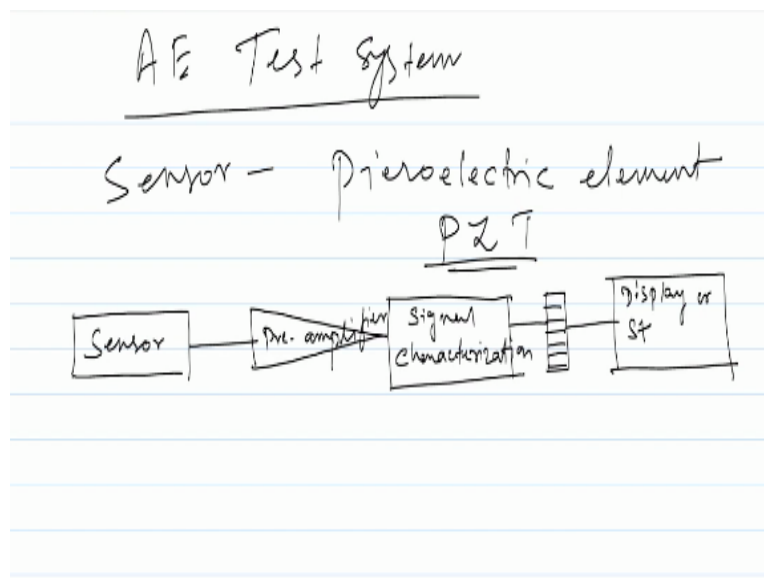 AE Test System
Sensor - Piezoelectric element
PZT
Sensor
Pre-amplifier
Signal
Characterization
Display or
St